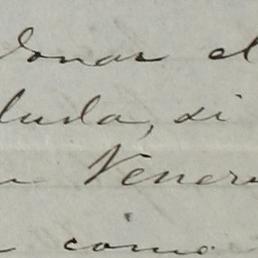 donar el
duda, si
Vener
como